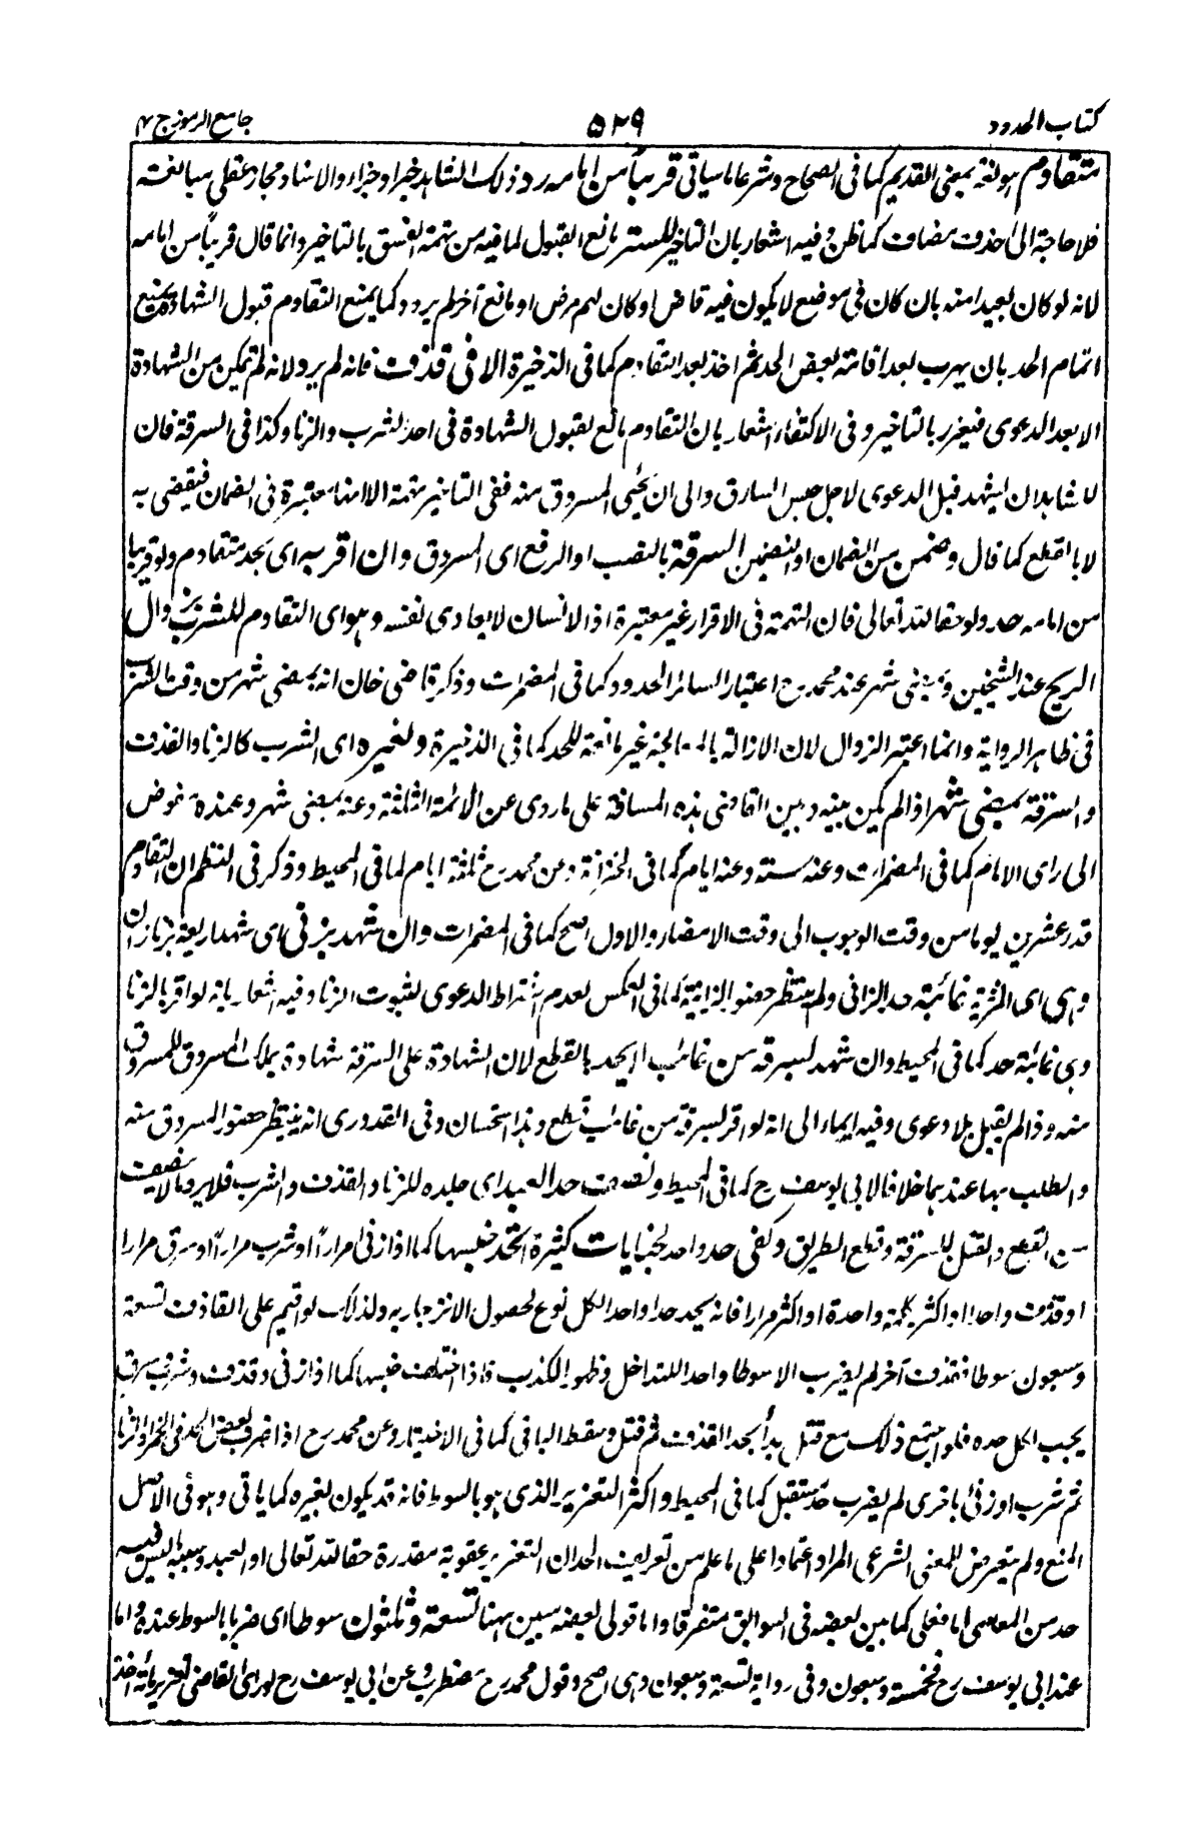 كتاب الحدود ٥٢٩ جامع الرموز ج ٢
متقادم هو لغة بمعنى القديم كما فى الصحاح وشرعا ما سياتى قريبا من امامه رد ذلك الشاهد خبر او جزاء والاسناد مجاز عقلى مبالغة
فلا حاجة الى حذف مضاف كما ظن وفيه اشعار بان التاخير للستر مانع القبول لما فيه من تهمة الفسق بالتاخير وانما قال قريبا من امامه
لانه لو كان بعيدا منه بان كان فى موضع لا يكون فيه قاض او كان لهم مرض او مانع آخر لم يردد كما يمنع التقادم قبول الشهادة يمنع
اتمام الحد بان يهرب بعد اقامة بعض الحد ثم اخذ بعد التقادم كما فى الذخيرة الا فى قذف فانه لم يرد لانه لم يتمكن من الشهادة
الا بعد الدعوى فيعزر بالتاخير وفى الاكتفاء اشعار بان التقادم مانع لقبول الشهادة فى احد لشرب والزنا وكذا فى السرقة فان
للشاهد ان يشهد قبل الدعوى لاجل حبس السارق والى ان يجئى المسروق منه ففى التاخير تهمة الا انها معتبرة فى الضمان فيقضى به
لا بالقطع كما قال وضمن من الضمان او التضمين السرقة بالنصب او الرفع اى المسروق وان اقر به اى بحد متقادم ولو قريبا
من امامه حد ولو حقا لله تعالى فان التهمة فى الاقرار غير معتبرة اذ الانسان لا يعادى نفسه وهو اى التقادم للشرب بزوال
الريح عند الشيخين وبمضى شهر عند محمد رح اعتبارا لسائر الحدود كما فى المضمرات وذكر قاضى خان انه بمضى شهر من وقت الشرب
فى ظاهر الرواية وانما اعتبر الزوال لان الازالة بالمعالجة غير مانعة للحد كما فى الذخيرة ولغيره اى الشرب كالزنا والقذف
والسرقة بمضى شهر اذا لم يكن بينه وبين القاضى هذه المسافة على ما روى عن الائمة الثلثة وعنه بمضى شهر وعنده مفوض
الى راى الامام كما فى المضمرات وعنه ستة وعنه ايام كما فى الخزانة وعن محمد رح ثلثة ايام كما فى المحيط وذكر فى النظم ان التقادم
قدر عشرين يوما من وقت الوجوب الى وقت الاحضار والاول اصح كما فى المضمرات وان شهد بزنى اى شهد اربعة بزنا زان
وهى اى المزنية غائبة حد الزانى ولم ينتظر حضور الزانية كما فى العكس لعدم اشتراط الدعوى لثبوت الزنا وفيه اشعار بانه لو اقر بالزنا
وهى غائبة حد كما فى المحيط وان شهد لسرقة من غائب لا يحد بالقطع لان الشهادة على السرقة شهادة بملك المسروق للمسروق
منه وذا لم يقبل بلا دعوى وفيه ايماء الى انه لو اقر لسرقة من غائب قطع وهذا استحسان وفى القدورى انه ينتظر حضور المسروق منه
والطلب بها عندهما خلافا لابى يوسف رح كما فى المحيط ونصف حد العبد اى جلده للزنا والقذف والشرب فلا يرد ما لا ينصف
من القطع والقتل للسرقة وقطع الطريق وكفى حد واحد لجنايات كثيرة اتحد جنسها كما اذا زنى مرارا او شرب مرارا او سرق مرارا
او قذف واحدا او اكثر بكلمة واحدة او اكثر مرارا فانه يحد حدا واحدا لكل نوع لحصول الانزجار به ولذلك لو اقيم على القاذف تسعة
وسبعون سوطا فقذف آخر لم يضرب الا سوطا واحدا للتداخل وظهور الكذب فاذا اختلف جنسها كما اذا زنى وقذف وشرب سرق
يجب لكل حده فلو اجتمع ذلك مع قتل بدأ بحد القذف ثم قتل وسقط الباقى كما فى الاختيار وعن محمد رح اذا ضرب بعض الحد فى الخمر او الزنا
ثم شرب او زنى باخرى لم يضرب حد مستقبل كما فى المحيط واكثر التعزير الذى هو بالسوط فانه قد يكون بغيره كما ياتى وهو فى الاصل
المنع ولم يتعرض للمعنى الشرعى المراد اعتمادا على ما علم من تعريف الحد ان التعزير عقوبة مقدرة حقا لله تعالى او العبد وسببه ما ليس فيه
حد من المعاصى اما فعلى كما بين بعضه فى السوابق متفرقا واما قولى بعضه سيبين ههنا تسعة وثلثون سوطا اى ضربا بالسوط عنده واما
عند ابى يوسف رح فخمسة وسبعون وفى رواية تسعة وسبعون وهى اصح وقول محمد رح مضطرب وعن ابى يوسف رح لو راى القاضى تعزير مائة اخذ